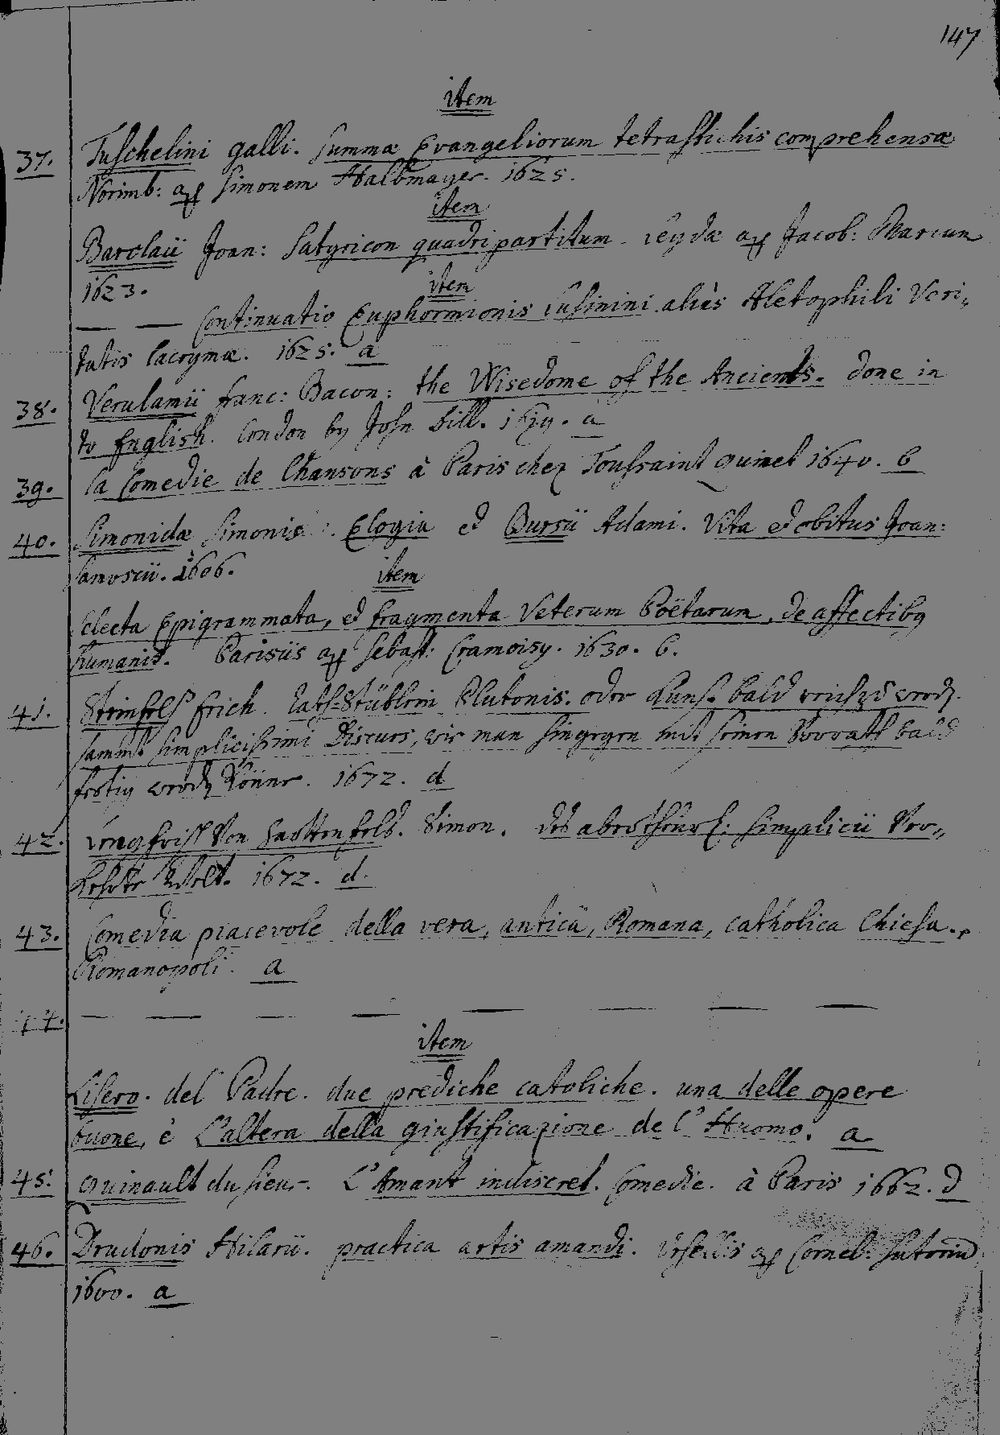 147
item
37. Tuschelini galli. Summa Evangeliorum tetrastichis comprehensa
Norimb: ap Simonem Halbmayer. 1625.
item
Barclaii Joan: Satyricon quadripartitum. Leydæ ap Jacob: Marcum
1623.
item
— — Continuatio Euphormionis Lusinini aliàs Aletophili Veri-
tatis lacrymæ. 1625. a
38. Verulamii franc: Bacon: the Wisedome of the Ancients. done in
to English. London by John Bill. 1619. a
39. La Comedie de Chansons à Paris chez Toussaint Quinet 1640. b
40. Simonidæ Simonis: Elogia et Bursii Adami. Vita et obitus Joan:
Samoscii. 1606.
item
Electa Epigrammata, et fragmenta Veterum Poëtarum, de affectibus
humanis. Parisiis ap Sebast: Cramoisy. 1630. b.
41. Steinfels Erich. Rath-Stüblein Plutonis. oder Kunst bald reich zu werdn.
sammt simplicissimi Discurs, wie man hingegen mit seinem Vorrath bald
fertig werdn könne. 1672. d
42. Lengfrisch Von Hartenfels. Simon. des abentheurl: simplicii Ver-
kehrte Welt. 1672. d.
43. Comedia piacevole della vera, antica, Romana, catholica Chiesa.
Romanopoli. a
44. — — — — — — — —
item
Lisero. del Padre. due prediche catoliche. una delle opere
buone, è L'altera della giustificazione de l' Huomo. a
45. Quinault du sieur. L'Amant indiscret. Comedie. à Paris 1662. d
46. Drudonis Hilarii. practica artis amandi. Ursellis ap Cornel: Sutorium
1600. a